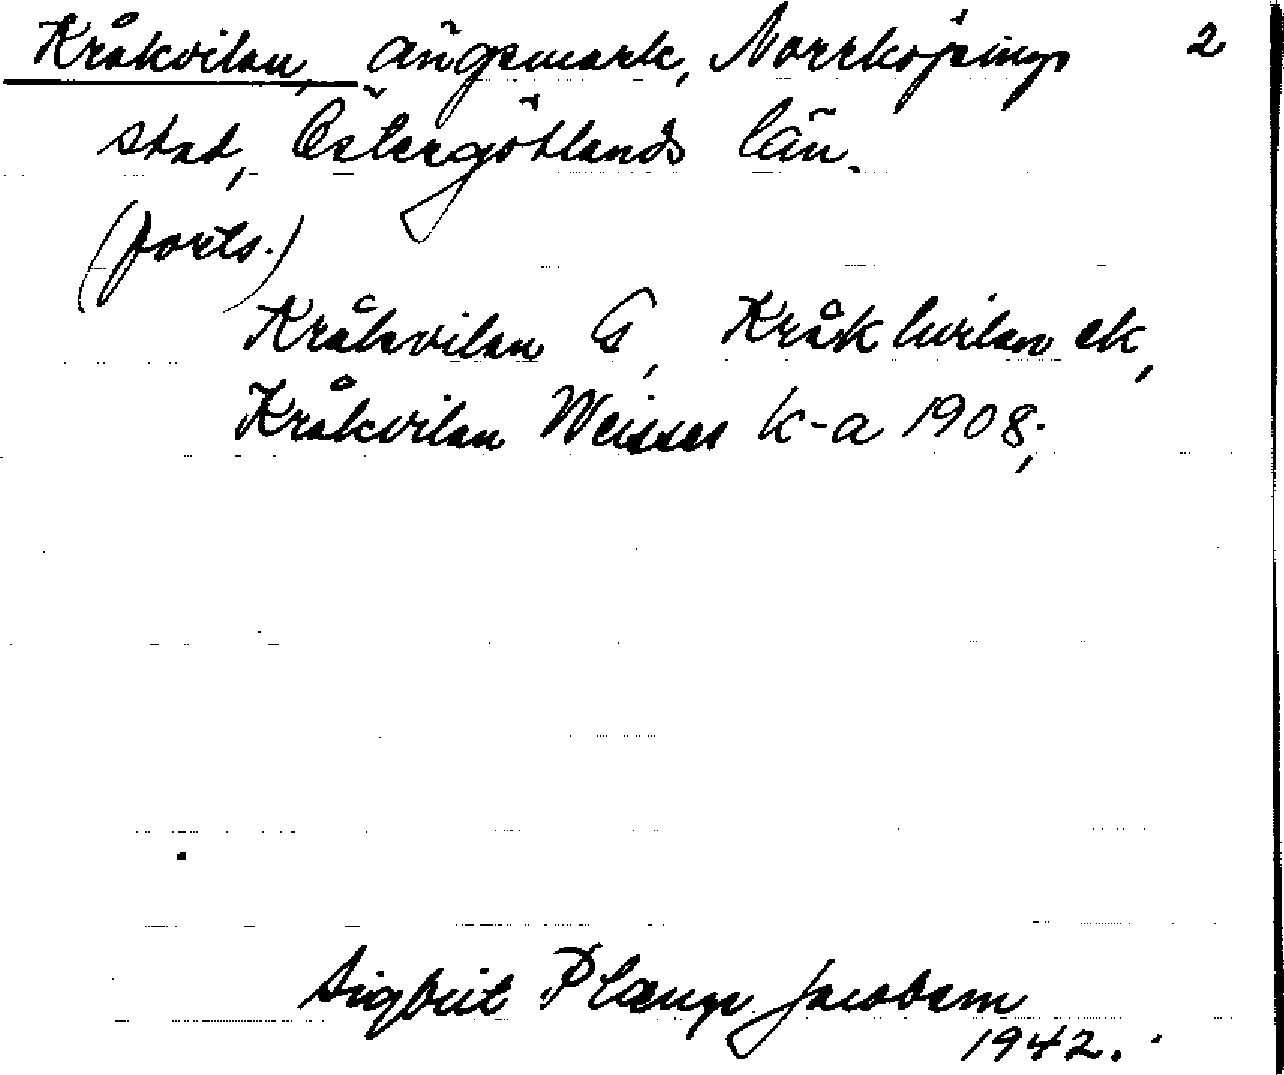 Kråkvilan, ängsmark, Norrköpings 2
stad, Östergötlands län.
(forts.)
Kråkvilan G, Kråkhvilan ek,
Kråkvilan Weisser k-a 1908;
Sigbrit Plænge Jacobson
1942.